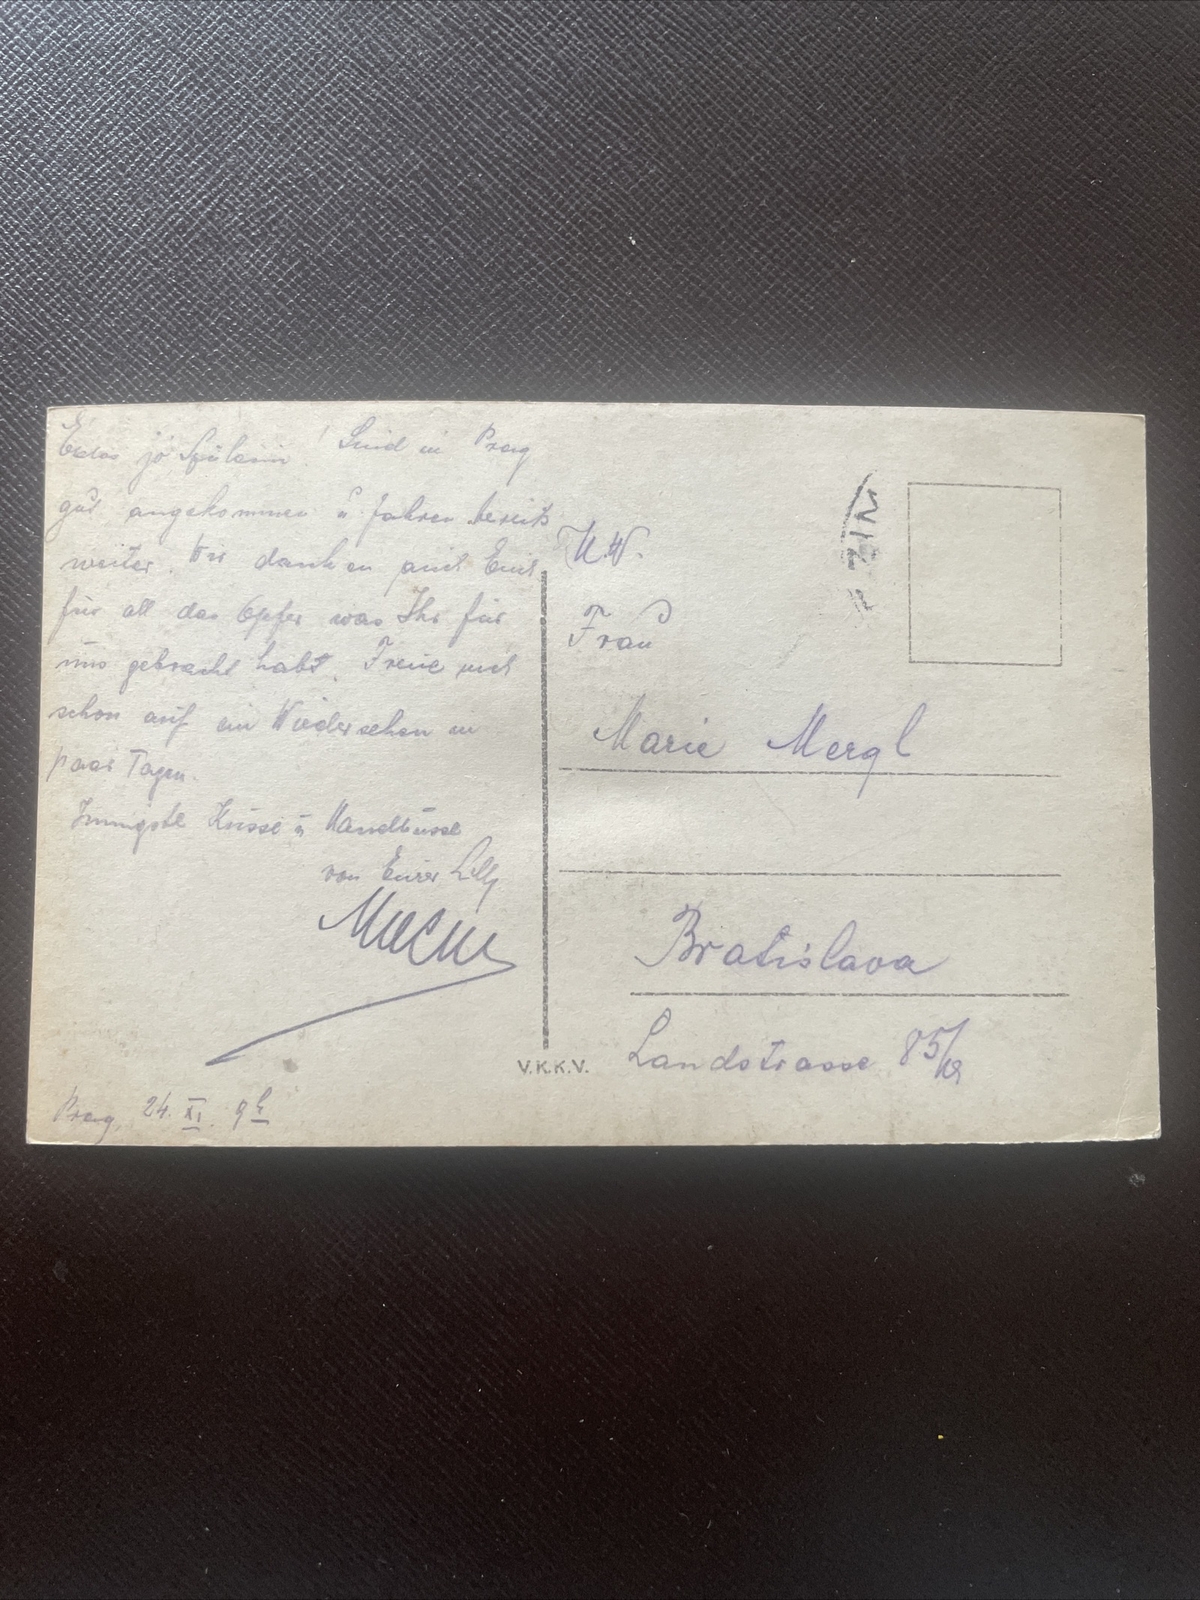 Edes jó Szüleim! Sind in Prag
gut angekommen u fahren bereits
weiter. Wir danken auch Euch
für all das Opfer was Ihr für
uns gebracht habt. Freue mich
schon auf ein Wiedersehen in
paar Tagen.
Innigste Küsse u Handküsse
von Eurer Lilly
Prag, 24. XI. 9h
V.K.K.V.
Frau
Marie Mergl
Bratislava
Landstrasse 85/